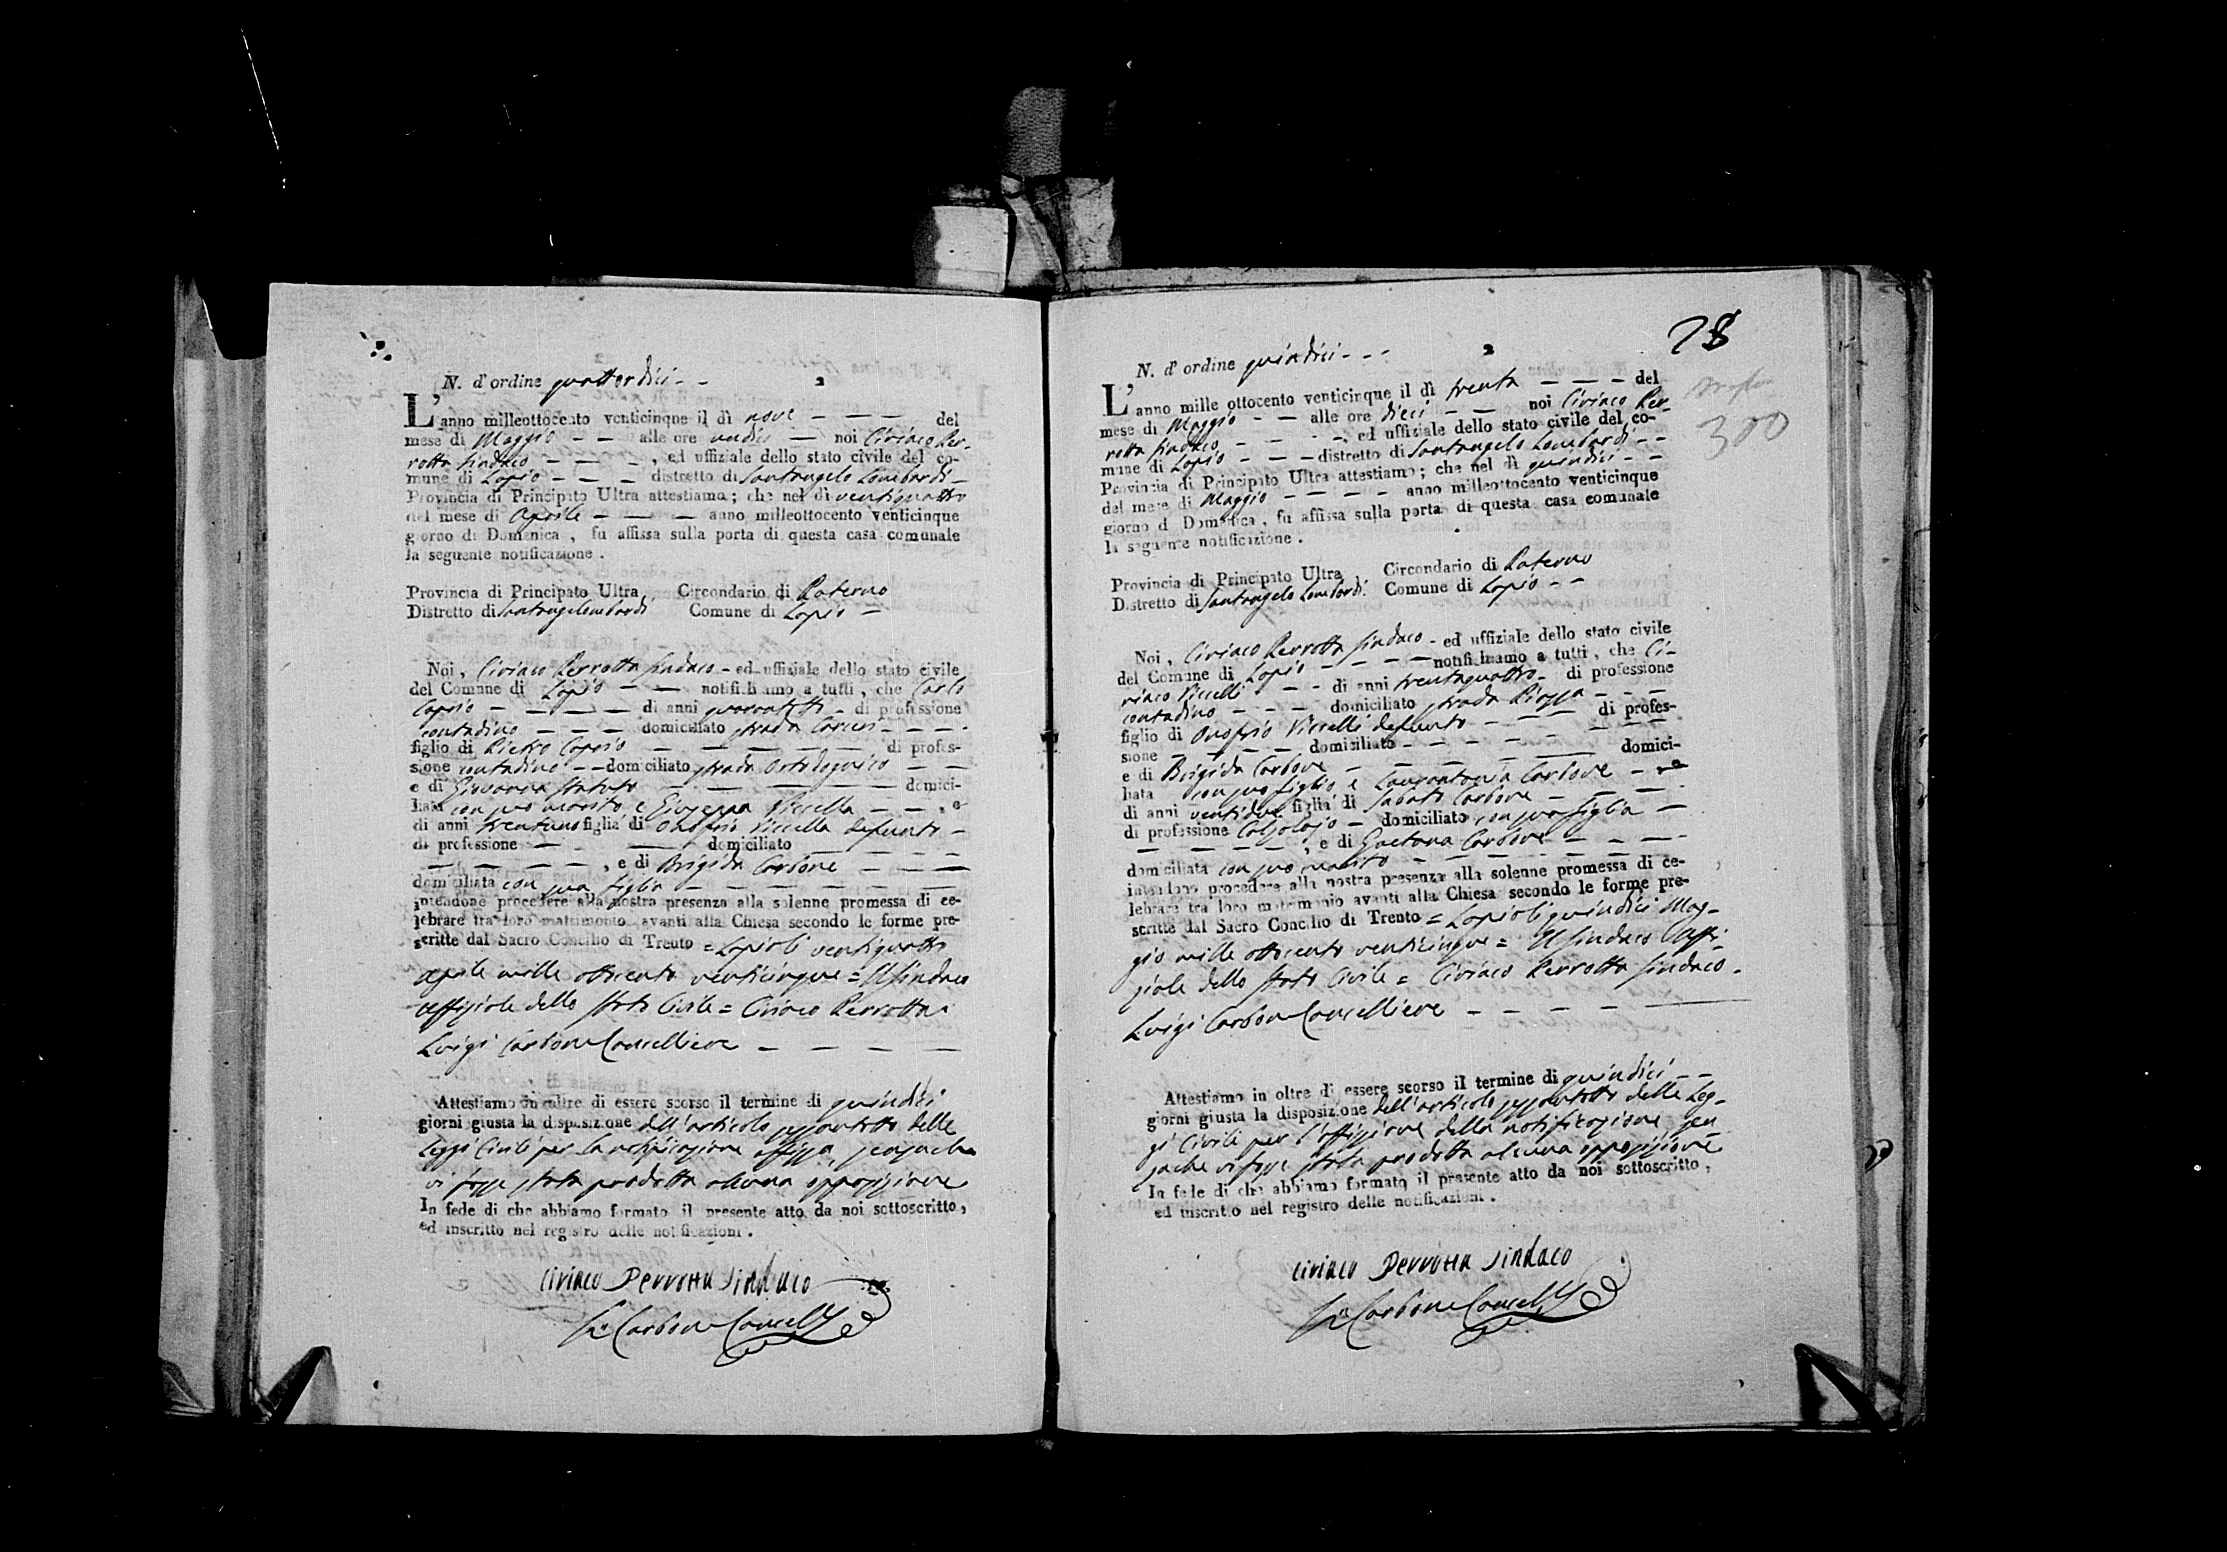 N. d'ordine quattordici - -
2
L'anno milleottocento venticinque il dì nove — — — del
mese di Maggio — — alle ore undici — noi Ciriaco Per-
rotta Sindaco — — — , ed uffiziale dello stato civile del co-
mune di Lapio — — — distretto di Santangelo Lombardi —
Provincia di Principato Ultra attestiamo; che nel dì ventiquattro
del mese di Aprile — — — anno milleottocento venticinque
giorno di Domenica , fu affissa sulla porta di questa casa comunale
la seguente notificazione .
Provincia di Principato Ultra Circondario di Paterno
Distretto di Santangelombardi Comune di Lapio —
Noi , Ciriaco Perrotta Sindaco - ed uffiziale dello stato civile
del Comune di Lapio — — notifichiamo a tutti , che Carlo
Caprio — — — — di anni - di professione
contadino — — — domiciliato strada - - -
figlio di Pietro Caprio — — — — — di profes-
sione contadino — — domiciliato strada — —
e di Giovanna — — — — domici-
liata con suo marito e Giuseppa Piccella — — , e
di anni trentuno figlia di Onofrio Piccella defunto —
di professione — — domiciliato — — —
— — — — — , e di Brigida Carbone — — —
domiciliata con sua figlia — — — — — —
intendono procedere alla nostra presenza alla solenne promessa di ce-
lebrare tra loro matrimonio avanti alla Chiesa secondo le forme pre-
scritte dal Sacro Concilio di Trento = Lapio li ventiquattro
Aprile mille ottocento venticinque = Il Sindaco
Uffiziale dello Stato Civile = Ciriaco Perrotta =
Luigi Carbone Cancelliere — — — —
Attestiamo in oltre di essere scorso il termine di quindici
giorni giusta la disposizione dell'articolo sessantotto delle
Leggi Civili per la notificazione affissa, senza che
vi fosse stata prodotta alcuna opposizione
In fede di che abbiamo formato il presente atto da noi sottoscritto ,
ed inscritto nel registro delle notificazioni .
Ciriaco Perrotta Sindaco
Carbone Cancell
78
N. d'ordine quindici - - -
2
300
L'anno mille ottocento venticinque il dì trenta — — — del
mese di Maggio — — alle ore dieci — — noi Ciriaco Per-
rotta Sindaco — — — , ed uffiziale dello stato civile del co-
mune di Lapio — — — distretto di Santangelo Lombardi — —
Provincia di Principato Ultra attestiamo; che nel dì quindici — —
del mese di Maggio — — — — anno milleottocento venticinque
giorno di Domenica , fu affissa sulla porta di questa casa comunale
la seguente notificazione .
Provincia di Principato Ultra Circondario di Paterno
Distretto di Santangelo Lombardi. Comune di Lapio — —
Noi , Ciriaco Perrotta Sindaco - ed uffiziale dello stato civile
del Comune di Lapio — — — — notifichiamo a tutti , che Ci-
riaco Piccelli — — — di anni trentaquattro - di professione
contadino — — — domiciliato strada Piazza — — —
figlio di Onofrio Piccelli defunto — — — di profes-
sione — — — — domiciliato — — — — —
e di Brigida Carbone — — — — — — domici-
liata con suo figlio e Laurantonia Carbone — , e
di anni ventidue figlia di Sabato Carbone — — —
di professione Calzolajo — domiciliato con sua figlia —
— — — — — , e di Gaetana Carbone — — — —
domiciliata con suo marito — — — — — — —
intendono procedere alla nostra presenza alla solenne promessa di ce-
lebrare tra loro matrimonio avanti alla Chiesa secondo le forme pre-
scritte dal Sacro Concilio di Trento = Lapio li quindici Mag-
gio mille ottocento venticinque = Il Sindaco Uffi-
ziale dello Stato Civile = Ciriaco Perrotta Sindaco -
Luigi Carbone Cancelliere — — — — —
Attestiamo in oltre di essere scorso il termine di quindici — —
giorni giusta la disposizione dell'articolo sessantotto delle Leg-
gi Civili per l'affissione della notificazione, sen
za che vi fosse stata prodotta alcuna opposizione
In fede di che abbiamo formato il presente atto da noi sottoscritto ,
ed inscritto nel registro delle notificazioni .
Ciriaco Perrotta Sindaco
Carbone Cancell